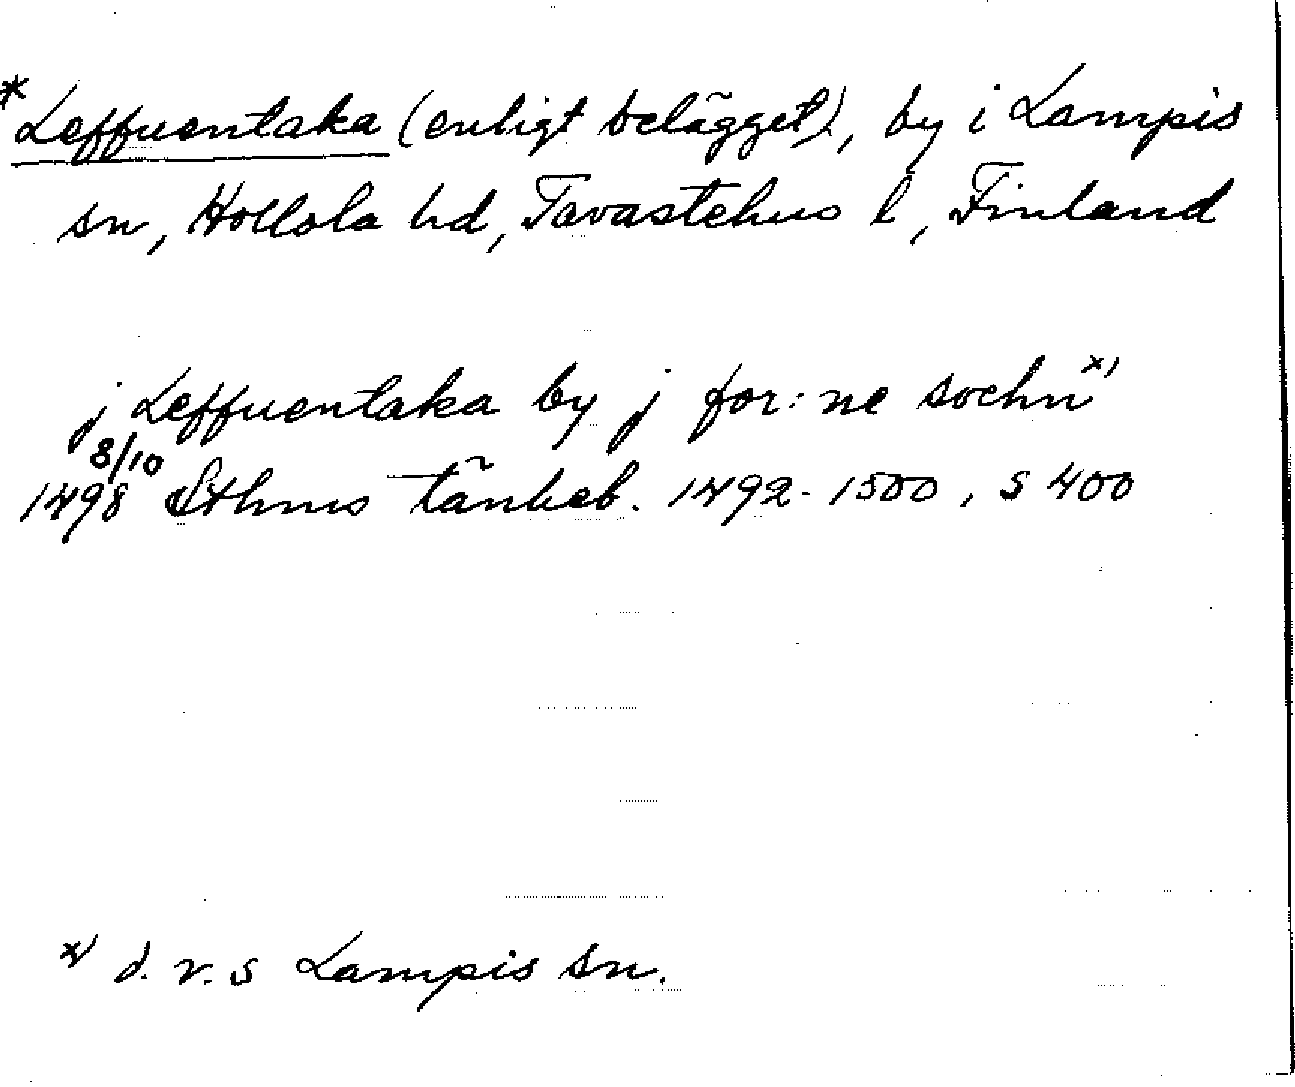 *Leffuentaka (enligt belägget), by i Lampis
sn, Hollola hd, Tavastehus l, Finland
j Leffuentaka by j for:ne sochn x)
1498 8/10 Sthms tänkeb. 1492-1500, s 400
x) d.v.s Lampis sn.